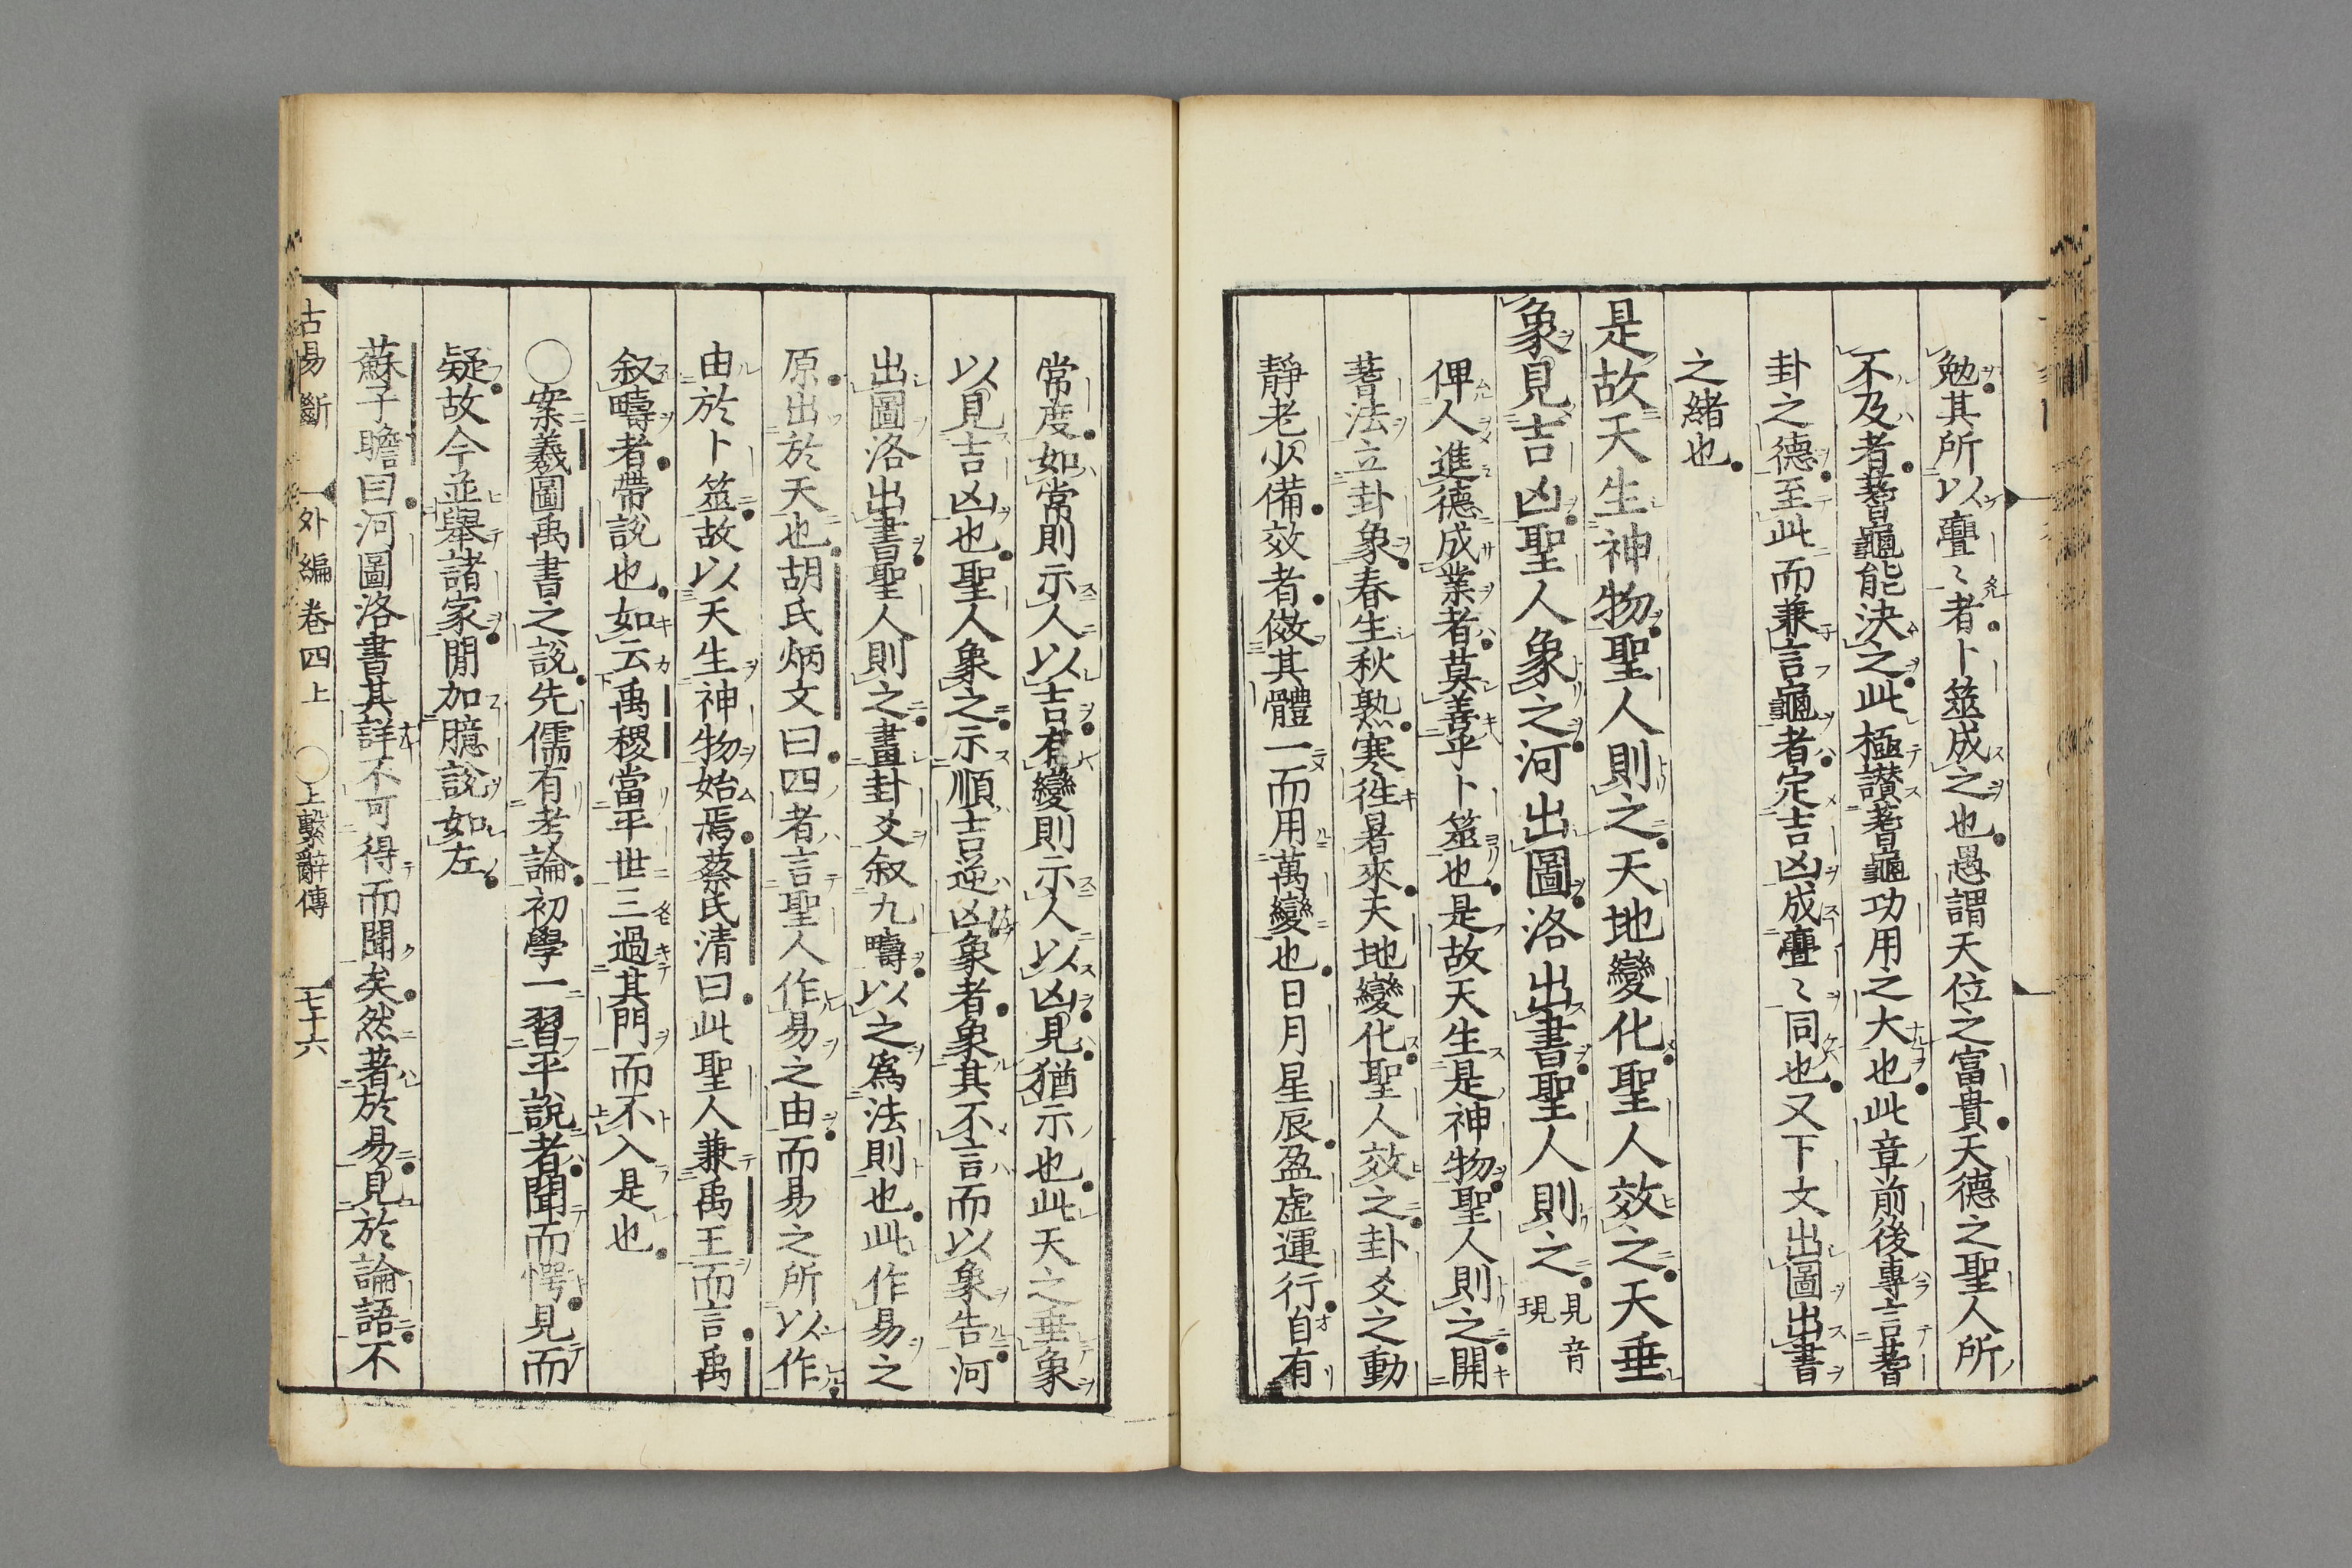 勉其所以亹〻者卜筮成之也愚謂天位之富貴天德之聖人所
不及者蓍龜能決之此極讃蓍龜功用之大也此章前後專言蓍
卦之德至此而兼言龜者定吉凶成亹〻同也又下文出圖出書
之緒也
是故天生神物聖人則之天地變化聖人效之天垂
象見吉凶聖人象之河出圖洛出書聖人則之見音現
俾人進德成業者莫善乎卜筮也是故天生是神物聖人則之開
蓍法立卦象春生秋熟寒徃暑來天地變化聖人效之卦爻之動
靜老少備效者倣其體一而用萬變也日月星辰盈虛運行自有
常度如常則示人以吉有變則示人以凶見猶示也此天之垂象
以見吉凶也聖人象之示順吉逆凶象者象其不言而以象告河
出圖洛出書聖人則之畫卦爻叙九疇以之爲法則也此作易之
原出於天也胡氏炳文曰四者言聖人作易之由而易之所以作
由於卜筮故以天生神物始焉蔡氏清曰此聖人兼禹王而言禹
叙疇者帶說也如云禹稷當平世三過其門而不入是也
○案羲圖禹書之説先儒有考論初學一習平説者聞而愕見而
疑故今並舉諸家閒加臆說如左
蘇子瞻曰河圖洛書其詳不可得而聞矣然著於易見於論語不
古易斷 外編卷四上 ○上繫辭傳 七十六